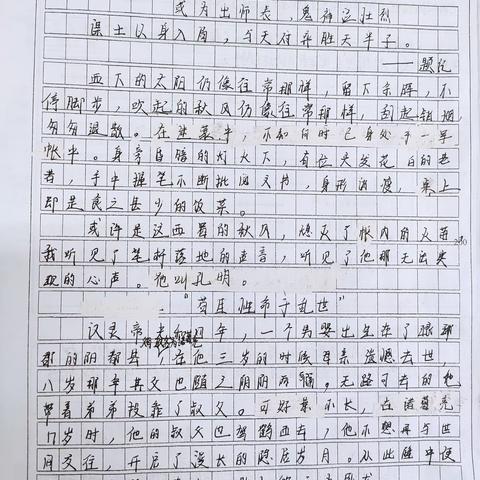 或为出师表,鬼神泣壮烈
谋士以身入局,与天对弈胜天半子。
——题记
西下的太阳仍像往常那样,留下余晖,不
停脚步,吹起的秋风仍像往常那样,刮起
匆匆退散。在迷茫中,不知何时已身处于一军
帐中。身旁昏暗的灯火下,有位头发花白的老
者,手中握笔不断批阅文书,身形消瘦,桌上
即是食之甚少的饭菜。
或许是这西蜀的秋风,熄灭了帐内的灯
我听见了笔折落地的声音,听见了他那无法实
现的心声。他叫孔明。
“苟且性命于乱世”
汉灵帝光和四年,一个男婴出生在了琅琊
郡的阳都县,在他三岁的时候母亲溘然去世,
八岁那年其父也随之阴阳两隔。无路可去的他
带着弟弟投靠了叔父。可好景不长,在诸葛亮
17岁时,他的叔父也驾鹤西去,他不想再与世
间交往,开启了漫长的隐居岁月。从此隆中便